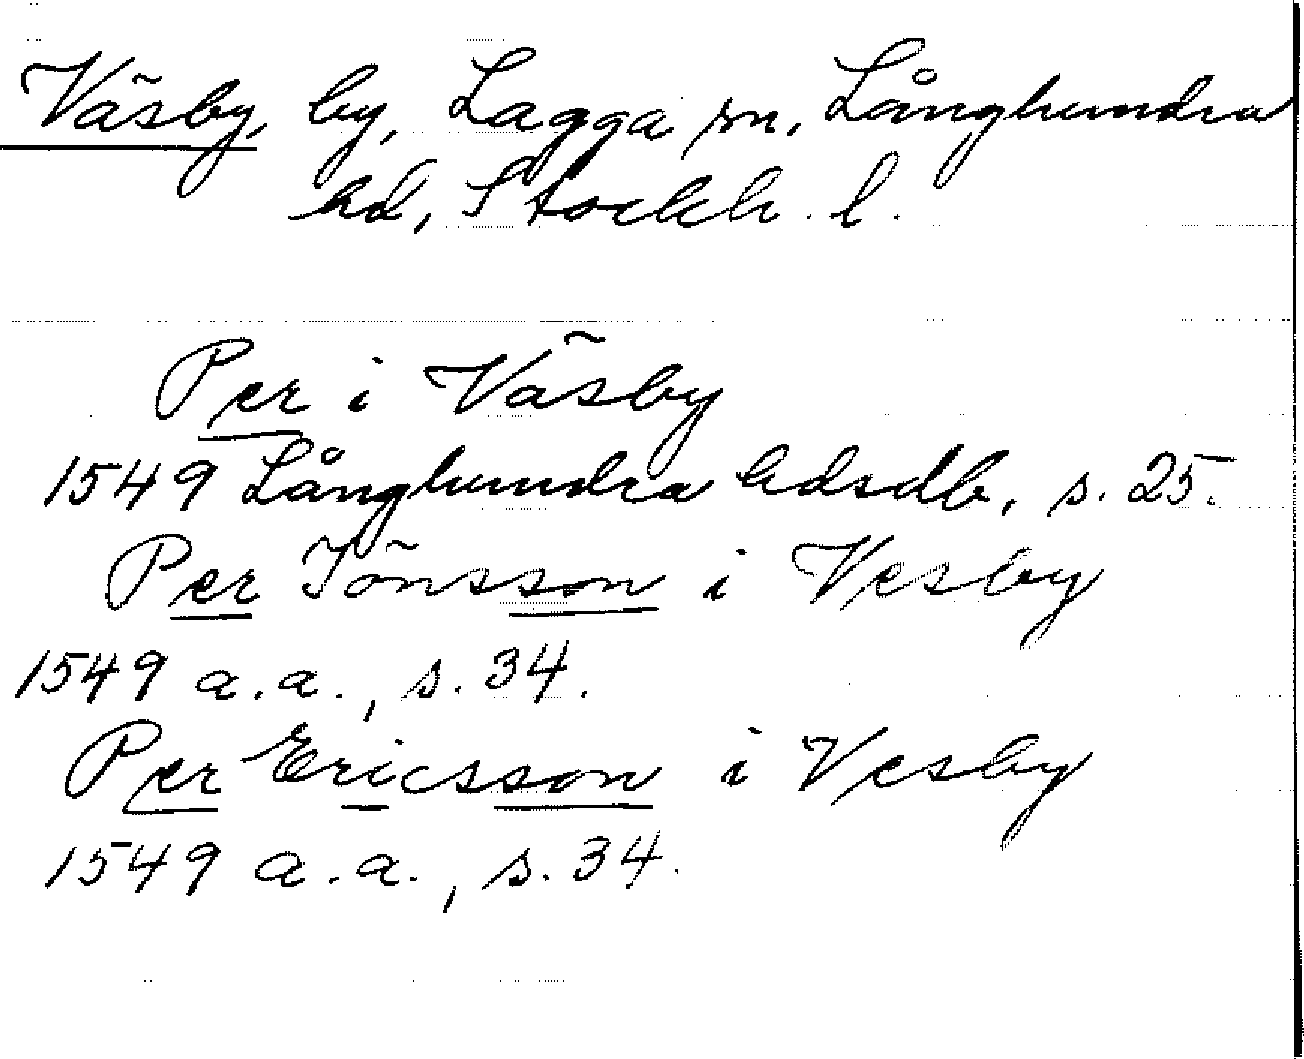 Väsby, by, Lagga sn, Långhundra
hd, Stockh. l.
Per i Väsby
1549 Långhundra hdsdb, s. 25.
Per Jönsson i Vesby
1549 a.a., s. 34.
Per Ericsson i Vesby
1549 a.a., s. 34.